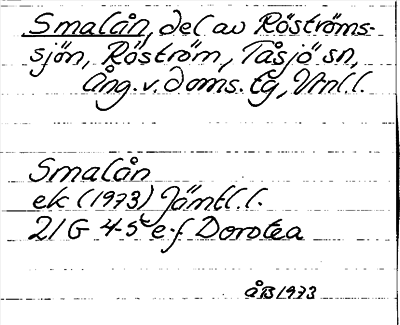 Smalån, del av Röströms-
sjön, Röström, Tåsjö sn,
Ång. v. doms. tg, Vnl. l.
Smalån
ek (1973) Jämtl. l.
21G 4-5 e-f Dorotea
ÅB 1973